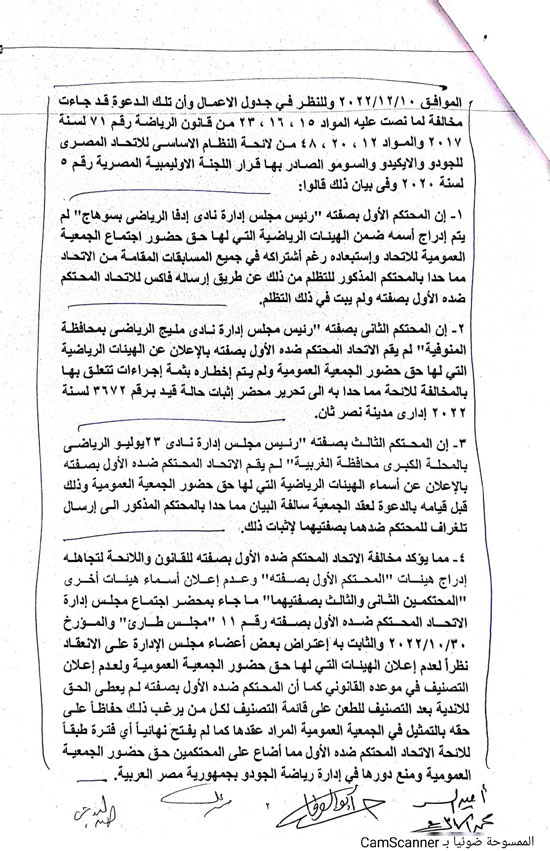 الموافق ٢٠٢٢/١٢/١٠ وللنظر في جدول الاعمال وأن تلك الدعوة قد جاءت
مخالفة لما نصت عليه المواد ١٥ ، ١٦ ، ٢٣ من قانون الرياضة رقم ٧١ لسنة
٢٠١٧ والمواد ١٢ ، ٢٠ ، ٤٨ من لائحة النظام الاساسى للاتحاد المصرى
للجودو والايكيدو والسومو الصادر بها قرار اللجنة الاوليمبية المصرية رقم ٥
لسنة ٢٠٢٠ وفى بيان ذلك قالوا:
١- إن المحتكم الأول بصفته "رئيس مجلس إدارة نادى إدفا الرياضى بسوهاج" لم
يتم إدراج أسمه ضمن الهيئات الرياضية التي لها حق حضور اجتماع الجمعية
العمومية للاتحاد وإستبعاده رغم أشتراكه في جميع المسابقات المقامة من الاتحاد
مما حدا بالمحتكم المذكور للتظلم من ذلك عن طريق إرساله فاكس للاتحاد المحتكم
ضده الأول بصفته ولم يبت في ذلك التظلم.
٢- إن المحتكم الثانى بصفته "رئيس مجلس إدارة نادى مليج الرياضى بمحافظة
المنوفية" لم يقم الاتحاد المحتكم ضده الأول بصفته بالإعلان عن الهيئات الرياضية
التي لها حق حضور الجمعية العمومية ولم يتم إخطاره بثمة إجراءات تتعلق بها
بالمخالفة للائحة مما حدا به الى تحرير محضر إثبات حالة قيد برقم ٣٦٧٢ لسنة
٢٠٢٢ إدارى مدينة نصر ثان.
٣- إن المحتكم الثالث بصفته "رئيس مجلس إدارة نادى ٢٣يوليو الرياضى
بالمحلة الكبرى محافظة الغربية" لم يقم الاتحاد المحتكم ضده الأول بصفته
بالإعلان عن أسماء الهيئات الرياضية التي لها حق حضور الجمعية العمومية وذلك
قبل قيامه بالدعوة لعقد الجمعية سالفة البيان مما حدا بالمحتكم المذكور الى إرسال
تلغراف للمحتكم ضدهما بصفتيهما لإثبات ذلك.
٤- مما يؤكد مخالفة الاتحاد المحتكم ضده الأول بصفته للقانون واللائحة لتجاهله
إدراج هيئات "المحتكم الأول بصفته" وعدم إعلان أسماء هيئات أخرى
"المحتكمين الثانى والثالث بصفتيهما" ما جاء بمحضر اجتماع مجلس إدارة
الاتحاد المحتكم ضده الأول بصفته رقم ١١ "مجلس طارئ" والمؤرخ
٢٠٢٢/١٠/٣٠ والثابت به إعتراض بعض أعضاء مجلس الإدارة على الانعقاد
نظراً لعدم إعلان الهيئات التي لها حق حضور الجمعية العمومية ولعدم إعلان
التصنيف في موعده القانوني كما أن المحتكم ضده الأول بصفته لم يعطى الحق
للاندية بعد التصنيف للطعن على قائمة التصنيف لكل من يرغب ذلك حفاظاً على
حقه بالتمثيل في الجمعية العمومية المراد عقدها كما لم يفتح نهائياً أي فترة طبقاً
للائحة الاتحاد المحتكم ضده الأول مما أضاع على المحتكمين حق حضور الجمعية
العمومية ومنع دورها في إدارة رياضة الجودو بجمهورية مصر العربية.
٢
الممسوحة ضوئيا بـ CamScanner